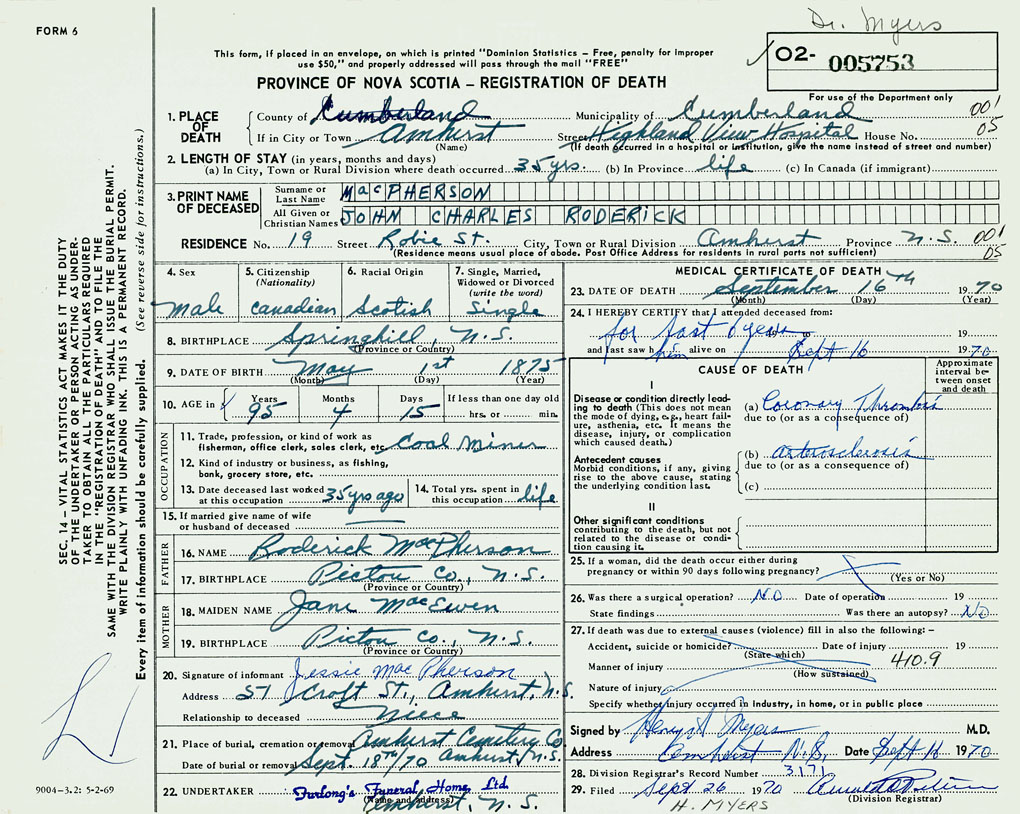 Dr. Myers
FORM 6
This form, if placed in an envelope, on which is printed "Dominion Statistics – Free, penalty for improper
use $50," and properly addressed will pass through the mail "FREE"
02- 005753
PROVINCE OF NOVA SCOTIA – REGISTRATION OF DEATH
For use of the Department only
1. PLACE OF DEATH
County of Cumberland Municipality of Cumberland 001
If in City or Town Amherst Street Highland View Hospital House No. 05
(Name) (If death occurred in a hospital or institution, give the name instead of street and number)
2. LENGTH OF STAY (in years, months and days)
(a) In City, Town or Rural Division where death occurred 35 yrs. (b) In Province life (c) In Canada (if immigrant)
3. PRINT NAME OF DECEASED
Surname or Last Name MacPHERSON
All Given or Christian Names JOHN CHARLES RODERICK
RESIDENCE No. 19 Street Robie St. City, Town or Rural Division Amherst Province N.S. 001
(Residence means usual place of abode. Post Office Address for residents in rural parts not sufficient) 05
4. Sex
Male
5. Citizenship
(Nationality)
Canadian
6. Racial Origin
Scotish
7. Single, Married,
Widowed or Divorced
(write the word)
Single
8. BIRTHPLACE Springhill, N.S.
(Province or Country)
9. DATE OF BIRTH May 1st 1875
(Month) (Day) (Year)
10. AGE in Years Months Days If less than one day old
95 4 15 hrs. or min.
OCCUPATION
11. Trade, profession, or kind of work as
fisherman, office clerk, sales clerk, etc. Coal Miner
12. Kind of industry or business, as fishing,
bank, grocery store, etc.
13. Date deceased last worked
at this occupation 35 yrs ago
14. Total yrs. spent in
this occupation life
15. If married give name of wife
or husband of deceased
FATHER
16. NAME Roderick MacPherson
17. BIRTHPLACE Pictou Co., N.S.
(Province or Country)
MOTHER
18. MAIDEN NAME Jane MacEwen
19. BIRTHPLACE Pictou Co., N.S.
(Province or Country)
20. Signature of informant Jessie MacPherson
Address 57 Croft St., Amherst, N.S.
Relationship to deceased Niece
21. Place of burial, cremation or removal Amherst Cemetery Co.
Date of burial or removal Sept. 18th/70 Amherst, N.S.
22. UNDERTAKER Furlong's Funeral Home Ltd.
(Name and address)
Amherst, N.S.
MEDICAL CERTIFICATE OF DEATH
23. DATE OF DEATH September 16th 1970
(Month) (Day) (Year)
24. I HEREBY CERTIFY that I attended deceased from:
for last 6 years to 19
and last saw him alive on Sept 16 1970
CAUSE OF DEATH
Approximate
interval be-
tween onset
and death
I
Disease or condition directly lead-
ing to death (This does not mean
the mode of dying, e.g., heart fail-
ure, asthenia, etc. It means the
disease, injury, or complication
which caused death.)
(a) Coronary Thrombosis
due to (or as a consequence of)
Antecedent causes
Morbid conditions, if any, giving
rise to the above cause, stating
the underlying condition last.
(b) Arterosclerosis
due to (or as a consequence of)
(c)
II
Other significant conditions
contributing to the death, but not
related to the disease or condi-
tion causing it.
25. If a woman, did the death occur either during
pregnancy or within 90 days following pregnancy?
(Yes or No)
26. Was there a surgical operation? No Date of operation 19
State findings Was there an autopsy? No
27. If death was due to external causes (violence) fill in also the following:–
Accident, suicide or homicide? Date of injury 19
(State which)
Manner of injury 410.9
(How sustained)
Nature of injury
Specify whether injury occurred in industry, in home, or in public place
Signed by Henry A Myers M.D.
Address Amherst N.S. Date Sept 16 1970
28. Division Registrar's Record Number 3171
29. Filed Sept 26 1970
(Division Registrar)
H. MYERS
SEC. 14 – VITAL STATISTICS ACT MAKES IT THE DUTY
OF THE UNDERTAKER OR PERSON ACTING AS UNDER-
TAKER TO OBTAIN ALL THE PARTICULARS REQUIRED
IN THE "REGISTRATION OF DEATH" AND TO FILE THE
SAME WITH THE DIVISION REGISTRAR WHO SHALL ISSUE THE BURIAL PERMIT.
WRITE PLAINLY WITH UNFADING INK. THIS IS A PERMANENT RECORD.
Every item of information should be carefully supplied. (See reverse side for instructions.)
9004-3.2: 5-2-69